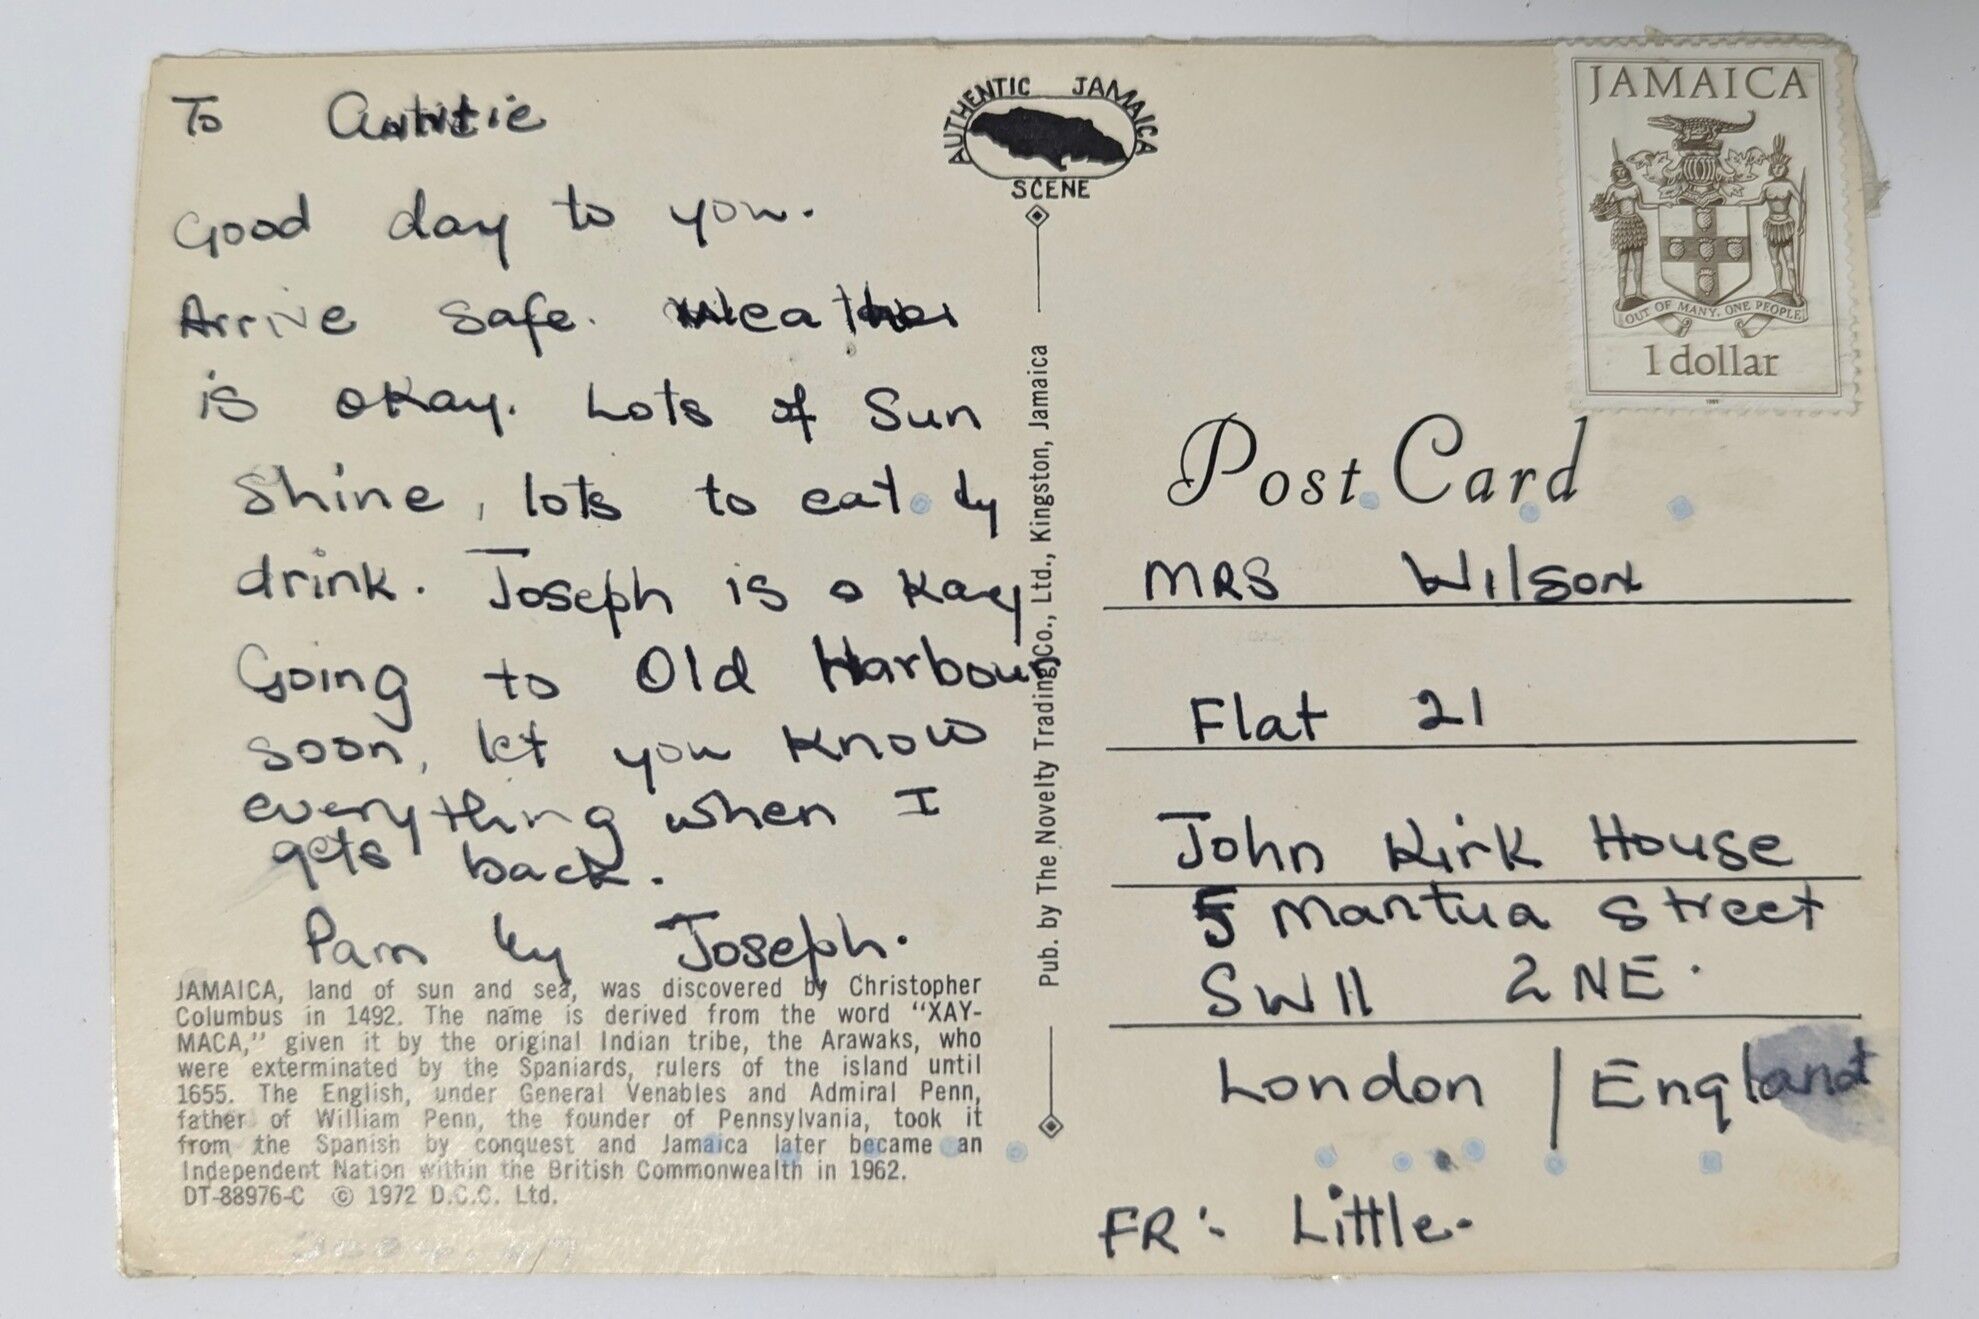 To Auntie
Good day to you.
Arrive safe. Weather
is okay. Lots of Sun
Shine, lots to eat &
drink. Joseph is okay
Going to Old Harbour
soon, let you know
everything when I
gets back.
Pam & Joseph.
JAMAICA, land of sun and sea, was discovered by Christopher
Columbus in 1492. The name is derived from the word "XAY-
MACA," given it by the original Indian tribe, the Arawaks, who
were exterminated by the Spaniards, rulers of the island until
1655. The English, under General Venables and Admiral Penn,
father of William Penn, the founder of Pennsylvania, took it
from the Spanish by conquest and Jamaica later became an
Independent Nation within the British Commonwealth in 1962.
DT-88976-C © 1972 D.C.C. Ltd.
AUTHENTIC JAMAICA
SCENE
Pub. by The Novelty Trading Co., Ltd., Kingston, Jamaica
JAMAICA
OUT OF MANY, ONE PEOPLE
1 dollar
Post Card
MRS Wilson
Flat 21
John Kirk House
5 Mantua Street
SW11 2NE.
London / England
FR:- Little-